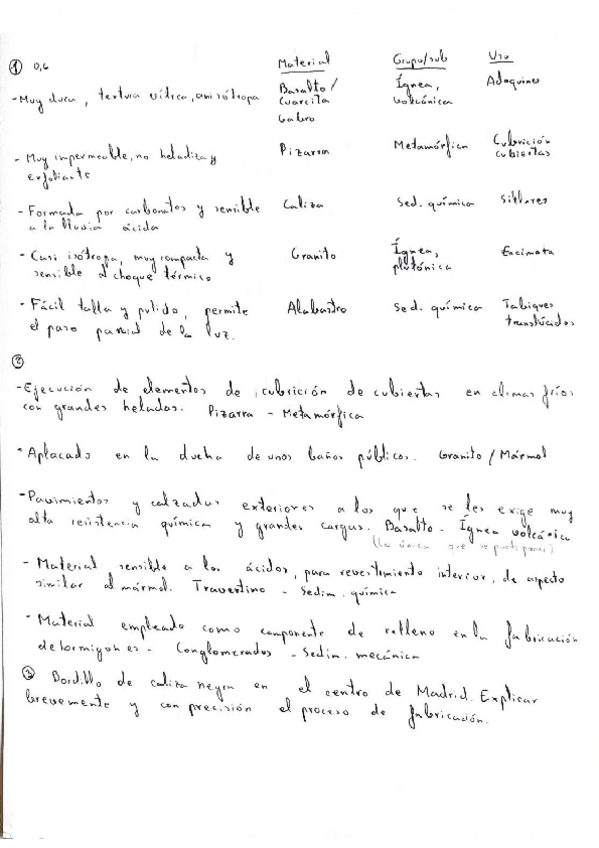 ① 0,6 Material Grupo/sub Uso
-Muy dura, textura vítrea, anisótropa Basalto / Cuarcita Gabro Ígnea, volcánica Adoquines
- Muy impermeable, no heladiza y exfoliante Pizarra Metamórfica Cubrición cubiertas
- Formada por carbonatos y sensible a la lluvia ácida Caliza Sed. química Sillares
- Casi isótropa, muy compacta y sensible al choque térmico Granito Ígnea, plutónica Encimera
- Fácil talla y pulido, permite el paso parcial de la luz. Alabastro Sed. química Tabiques translúcidos
②
-Ejecución de elementos de cubrición de cubiertas en climas fríos
con grandes heladas. Pizarra - Metamórfica
- Aplacado en la ducha de unos baños públicos. Granito / Mármol
- Pavimientos y calzadas exteriores a los que se les exige muy
alta resistencia química y grandes cargas. Basalto - Ígnea volcánica
(La única que se puede poner)
- Material sensible a los ácidos, para revestimiento interior, de aspecto
similar al mármol. Travertino - Sedim. química
- Material empleado como componente de relleno en la fabricación
de hormigones - Conglomerados - Sedim. mecánica
③ Bordillo de caliza negra en el centro de Madrid. Explicar
brevemente y con precisión el proceso de fabricación.